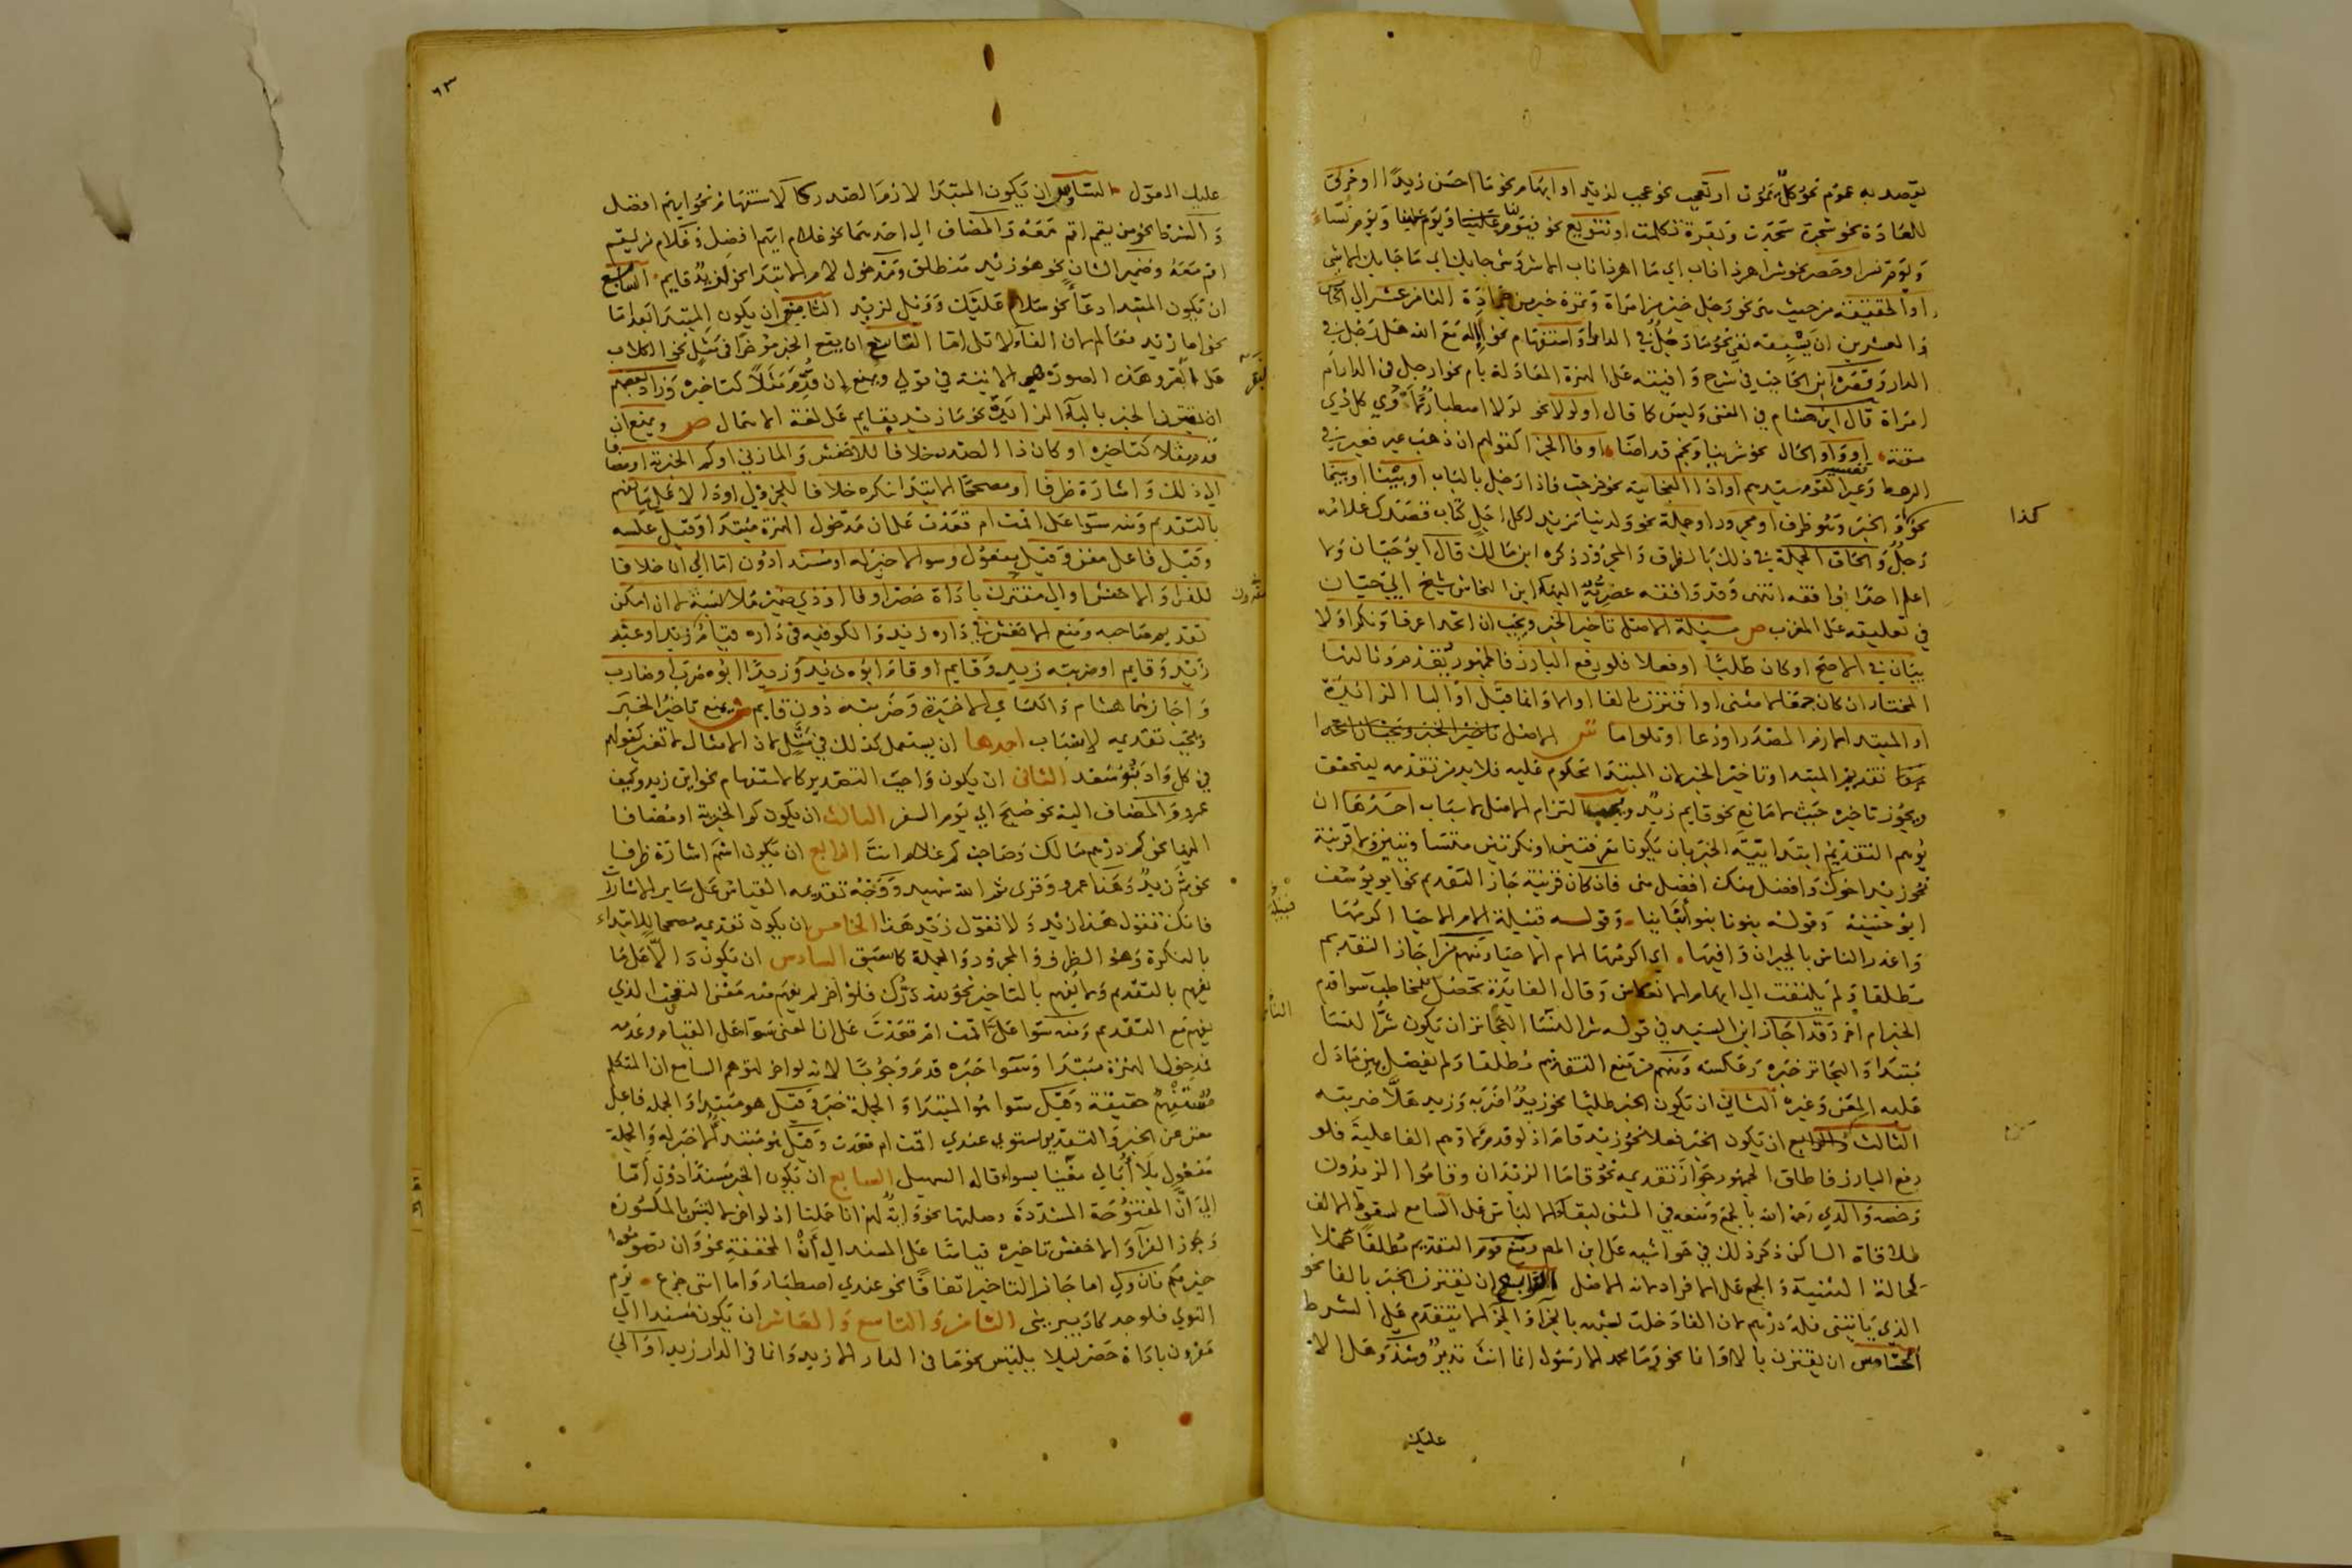 يقصد به عموم نحو كل يموت او تعجب نحو عجب لزيد او ابهام نحو ما احسن زيدا او خرق
للعادة نحو شجرة سجدت وبقرة تكلمت او تنويع نحو فيوم علينا ويوم لنا ويوم نساء
ويوم نسر او حصر نحو شر اهر ذا ناب اي ما اهر ذا ناب الا شر وشي جابك اي ما جابك الا شي
او الحقيقة من حيث هي نحو رجل خير من امراة وتمرة خير من جرادة الثامن عشر الى
والعشرين ان يسبقه نفي نحو ما رجل في الدار او استفهام نحو االه مع الله هل رجل في
الدار وقصره ابن الحاجب في شرح وافيته على الهمزة المعادلة بام نحو ارجل في الدار ام
امراة قال ابن هشام في المغني وليس كما قال او لولا نحو لولا اصطبار لاودى كل ذي
مقة او واو الحال نحو سرينا ونجم قد اضا او فا الجزا كقولهم ان ذهب عير فعير في
الرهط وعير القوم سيدهم او اذا الفجائية نحو خرجت فاذا رجل بالباب او بينا او بينما
نحو او الخبر وهو ظرف او مجرور او جملة نحو ولدينا مزيد لكل اجل كتاب قصدك غلامه
رجل والحاق الجملة في ذلك بالظرف والمجرور ذكره ابن مالك قال ابو حيان ولا
اعلم احدا وافقه انتهى وقد وافقه عصريه البها ابن النحاس شيخ ابي حيان
في تعليقه على المقرب ص مسئلة الاصل تاخير الخبر ويجب ان اتحدا عرفا ونكرا ولا
بيان في الاصح او كان طلبيا او فعلا فلو رفع البارز فالجمهور يقدم وثالثها
المختار ان كان جمعا لا مثنى او اقترن بالفا او الا وانما قيل او البا الزائدة
او المبتدا لازم الصدر او دعا او تلو اما ش الاصل تاخير الخبر ويجب ان اتحدا
تقديم المبتدا وتاخير الخبر لان المبتدا محكوم عليه فلا بد من تقدمه ليتحقق
ويجوز تاخيره حيث لا مانع نحو قايم زيد ويجب التزام الاصل لاسباب احدها ان
يوهم التقديم ابتدائية الخبر بان يكونا معرفتين او نكرتين متساويتين ولا قرينة
نحو زيد اخوك وافضل منك افضل مني فان كان قرينة جاز التقديم نحو ابو يوسف
ابو حنيفة وقوله بنونا بنو ابنائنا وقوله قبيلة الام الاحيا اكرمها
واغدر الناس بالجيران وافيها اي اكرمها الام الاحيا ومنهم من اجاز التقديم
مطلقا ولم يلتفت الى ايهام الانعكاس وقال الفايدة تحصل للمخاطب سوا قدم
الخبر ام اخر وقد اجاز ابن السيد في قوله شر النسا البحاتر ان يكون شر النسا
مبتدا والبحاتر خبره وعكسه ومنهم من منع التقديم مطلقا ولم يفصل بين ما دل
عليه المعنى وغيره الثاني ان يكون الخبر طلبيا نحو زيد اضربه وزيد هلا ضربته
الثالث والرابع ان يكون الخبر فعلا نحو زيد قام اذ لو قدم لاوهم الفاعلية فلو
رفع البارز فاطلق الجمهور جواز تقديمه نحو قاما الزيدان وقاموا الزيدون
وخصه والدي رحمه الله بالجمع ومنعه في المثنى لبقاء الالباس على السامع لسقوط الالف
لملاقاة الساكن ذكر ذلك في حواشيه على ابن المص ومنع قوم التقديم مطلقا حملا
لحالة التثنية والجمع على الافراد لانه الاصل الرابع ان يقترن الخبر بالفا نحو
الذي ياتيني فله درهم لان الفا دخلت لشبهه بالجزاء والجزا لا يتقدم على الشرط
الخامس ان يقترن بالا وانما نحو وما محمد الا رسول انما انت نذير وشذ وهل الا
عليك
كذا
قبيلة
٦٣
عليك المعول السادس ان يكون المبتدا لازم الصدر كالاستفهام نحو ايهم افضل
والشرط نحو من يقم اقم معه والمضاف الى احدهما نحو غلام ايهم افضل وغلام من يقم
اقم معه وضمير الشان نحو هو زيد منطلق ومدخول لام الابتدا نحو لزيد قايم السابع
ان يكون المبتدا دعا نحو سلام عليك وويل لزيد الثامن ان يكون المبتدا بعد اما
نحو اما زيد فعالم لان الفا لا تلي اما التاسع ان يقع الخبر مؤخرا في مثل نحو الكلاب
على البقر وهذه الصورة هي الاتية في قولي ويمنع ان قدم مثلا كتاخيره وزاد بعضهم
ان يقترن الخبر بالباء الزائدة نحو ما زيد بقايم على لغة الاهمال ص ويمنع ان
قدم مثلا كتاخيره او كان ذا الصدر خلافا للاخفش والمازني او كم الخبرية او مضافا
الى ذلك واشارة ظرفا او مصححا لابتدا نكرة خلافا للجزولي او دالا على ما يفهم
بالتقديم ومنه سوا على اقمت ام قعدت على ان مدخول الهمزة مبتدا وقيل عكسه
وقيل فاعل مغن وقيل مفعول وسوا لا خبر له او مسند ادون اما الى ان خلافا
للفرا والاخفش او الى مقترن باداة حصر او فا او ذي ضمير ملابسه لا ان امكن
تقديم صاحبه ومنع الاخفش في داره زيد والكوفيه في داره قيام زيد او عبد
زيد وقايم او ضربته زيد وقايم او قام ابوه زيد وزيدا ابوه ضرب او ضارب
واجازهما هشام والكسائي الاخيرة وضربته دون قايم ش يمنع تاخير الخبر
ويجب تقديمه لاسباب احدها ان يستعمل كذلك في مثل لان الامثال لا تغير كقولهم
في كل واد بنو سعد الثاني ان يكون واجب التصدير كالاستفهام نحو اين زيد وكيف
عمرو والمضاف اليه نحو صبح اي يوم السفر الثالث ان يكون كم الخبرية او مضافا
اليها نحو كم درهم مالك وصاحب كم غلام انت الرابع ان يكون اسم اشارة ظرفا
نحو ثم زيد وهنا عمرو وقرى ثم الله شهيد ووجه تقديمه القياس على ساير الاشارات
فانك تقول هذا زيد ولا تقول زيد هذا الخامس ان يكون تقديمه مصححا للابتداء
بالنكرة وهو الظرف والمجرور والجملة كما سبق السادس ان يكون دالا على ما
يفهم بالتقديم ولا يفهم بالتاخير نحو لله درك فلو اخر لم يفهم منه معنى التعجب الذي
يفهم مع التقديم ومنه سوا على اقمت ام قعدت على ان المعنى سوا على القيام وعدمه
فمدخول الهمزة مبتدا وسوا خبره قدم وجوبا لانه لو اخر لتوهم السامع ان المتكلم
مستفهم حقيقة وقيل سوا هو المبتدا والجملة خبر وقيل هو مبتدا والجملة فاعل
مغن عن الخبر والتقدير استوى عندي اقمت ام قعدت وقيل هو مبتدا لا خبر له والجملة
مفعول بلا ابالي مغنيا بسواء قاله السهيلي السابع ان يكون الخبر مسندا دون اما
الى ان المفتوحة المشددة وصلتها نحو واية لهم انا حملنا اذ لو اخر لالتبس بالمكسورة
وجوز الفراء والاخفش تاخيره قياسا على المسند الى ان المخففة نحو وان تصوموا
خير لكم فان ولي اما جاز التاخير اتفاقا نحو عندي اصطبار واما انني جزع يوم
النوى فلوجد كاد يبريني الثامن والتاسع والعاشر ان يكون مسندا الى
مقرون باداة حصر ليلا يلتبس نحو ما في الدار الا زيد وانما في الدار زيد او الى